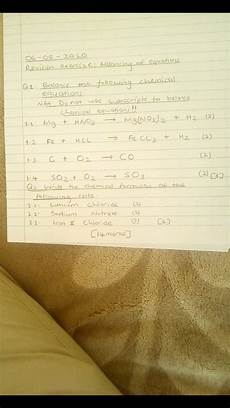 06-05-2020
Revision Exercise: Balancing of equations
Q1 Balance the following chemical
equations
NB Do not use subscripts to balance
chemical equations!!!
1.1 Mg + HNO₃ → Mg(NO₃)₂ + H₂ (2)
1.2 Fe + HCL → FeCL₂ + H₂ (2)
1.3 C + O₂ → CO (2)
1.4 SO₂ + O₂ → SO₃ (2)
Q2 Write the chemical formulae of the
following
2.1 Chloride (2)
2.2 Sodium Nitrate (2)
2.3 Iron II Chloride (2) [6]